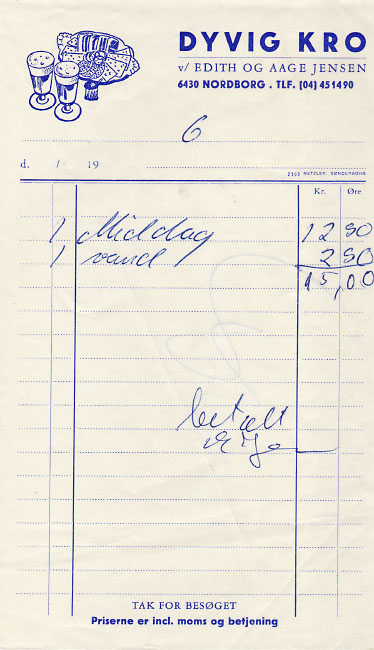 DYVIG KRO
v/ EDITH OG AAGE JENSEN
6430 NORDBORG . TLF. (04) 451490
6
d. / 19
2302 NETZLER, SØNDERBORG
Kr. Øre
1 Middag 12 50
1 vand 2 50
15,00
betalt
TAK FOR BESØGET
Priserne er incl. moms og betjening